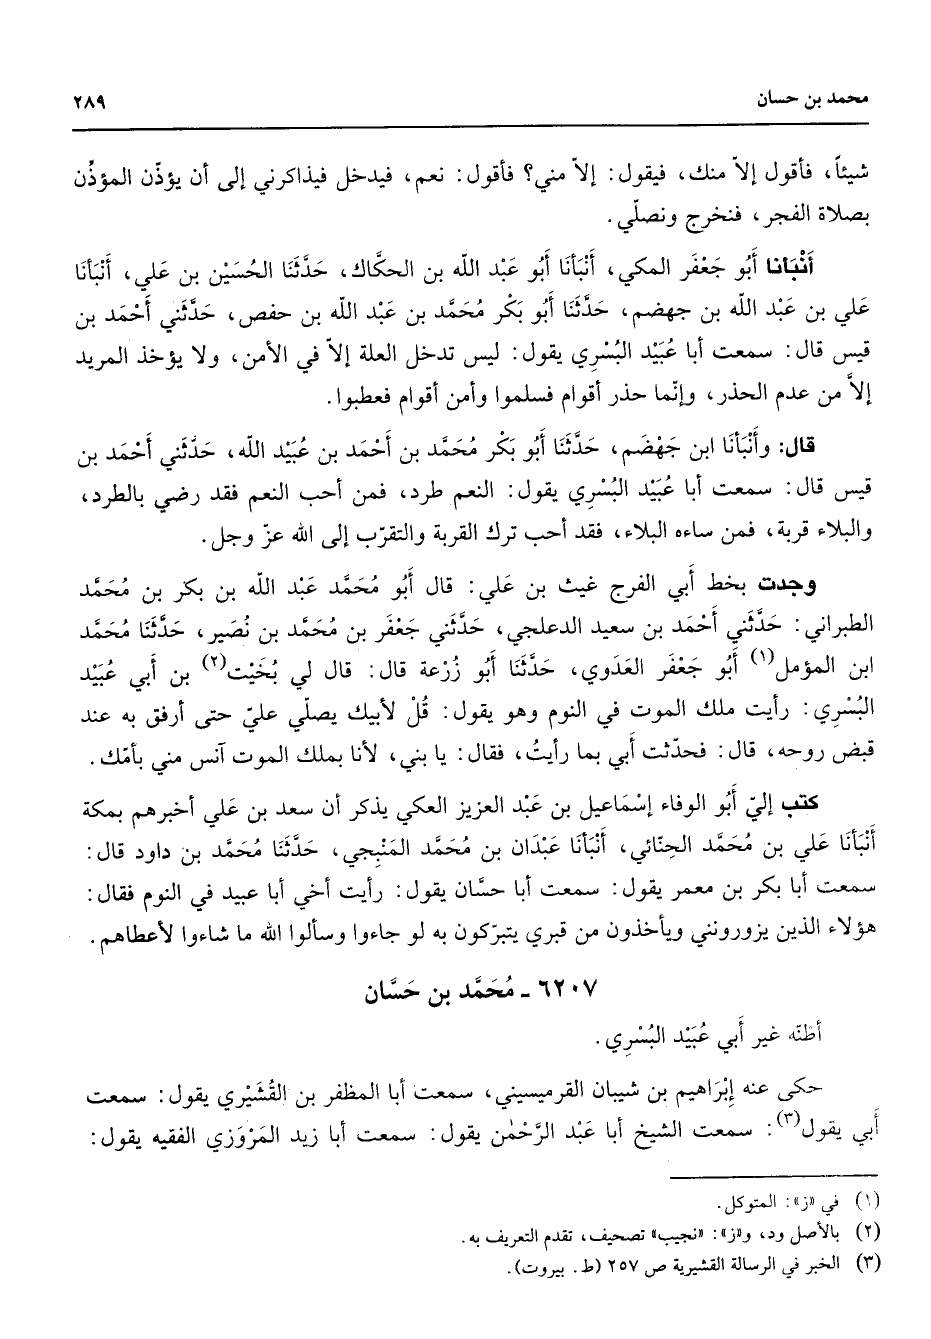 محمد بن حسان ٢٨٩
شيئاً، فأقول إلاّ منك، فيقول: إلاّ مني؟ فأقول: نعم، فيدخل فيذاكرني إلى أن يؤذّن المؤذّن
بصلاة الفجر، فنخرج ونصلّي.
أَنْبَانا أَبُو جَعْفَر المكي، أَنْبَأنَا أَبُو عَبْد الله بن الحكَّاك، حَدَّثَنَا الحُسَيْن بن عَلي، أَنْبَأنَا
عَلي بن عَبْد الله بن جهضم، حَدَّثَنَا أَبُو بَكْر مُحَمَّد بن عَبْد الله بن حفص، حَدَّثَني أَحْمَد بن
قيس قال: سمعت أبا عُبَيْد البُسْري يقول: ليس تدخل العلة إلاّ في الأمن، ولا يؤخذ المريد
إلاَّ من عدم الحذر، وإنّما حذر أقوام فسلموا وأمن أقوام فعطبوا.
قال: وأَنْبَأنَا ابن جَهْضَم، حَدَّثَنَا أَبُو بَكْر مُحَمَّد بن أَحْمَد بن عُبَيْد الله، حَدَّثَني أَحْمَد بن
قيس قال: سمعت أبا عُبَيْد البُسْري يقول: النعم طرد، فمن أحب النعم فقد رضي بالطرد،
والبلاء قربة، فمن ساءه البلاء، فقد أحب ترك القربة والتقرّب إلى الله عزّ وجل.
وجدت بخط أَبي الفرج غيث بن عَلي: قال أَبُو مُحَمَّد عَبْد الله بن بكر بن مُحَمَّد
الطبراني: حَدَّثَني أَحْمَد بن سعيد الدعلجي، حَدَّثَني جَعْفَر بن مُحَمَّد بن نُصَير، حَدَّثَنَا مُحَمَّد
ابن المؤمل(١) أَبُو جَعْفَر العَدَوي، حَدَّثَنَا أَبُو زُرْعة قال: قال لي بُخَيْت(٢) بن أَبي عُبَيْد
البُسْري: رأيت ملك الموت في النوم وهو يقول: قُلْ لأبيك يصلّي عليّ حتى أرفق به عند
قبض روحه، قال: فحدّثت أَبي بما رأيتُ، فقال: يا بني، لأنا بملك الموت آنس مني بأمّك.
كتب إليّ أَبُو الوفاء إسْمَاعيل بن عَبْد العزيز العكي يذكر أن سعد بن عَلي أخبرهم بمكة
أَنْبَأنَا عَلي بن مُحَمَّد الحِنّائي، أَنْبَأنَا عَبْدَان بن مُحَمَّد المَنْبِجي، حَدَّثَنَا مُحَمَّد بن داود قال:
سمعت أبا بكر بن معمر يقول: سمعت أبا حسَّان يقول: رأيت أخي أبا عبيد في النوم فقال:
هؤلاء الذين يزورونني ويأخذون من قبري يتبرّكون به لو جاءوا وسألوا الله ما شاءوا لأعطاهم.
٦٢٠٧ ـ مُحَمَّد بن حَسَّان
أظنّه غير أَبي عُبَيْد البُسْري.
حكى عنه إِبْرَاهيم بن شيبان القرميسيني، سمعت أبا المظفر بن القُشَيْري يقول: سمعت
أَبي يقول(٣): سمعت الشيخ أبا عَبْد الرَّحْمٰن يقول: سمعت أبا زيد المَرْوَزي الفقيه يقول:
(١) في «ز»: المتوكل.
(٢) بالأصل ود، و«ز»: «نجيب» تصحيف، تقدم التعريف به.
(٣) الخبر في الرسالة القشيرية ص ٢٥٧ (ط. بيروت).